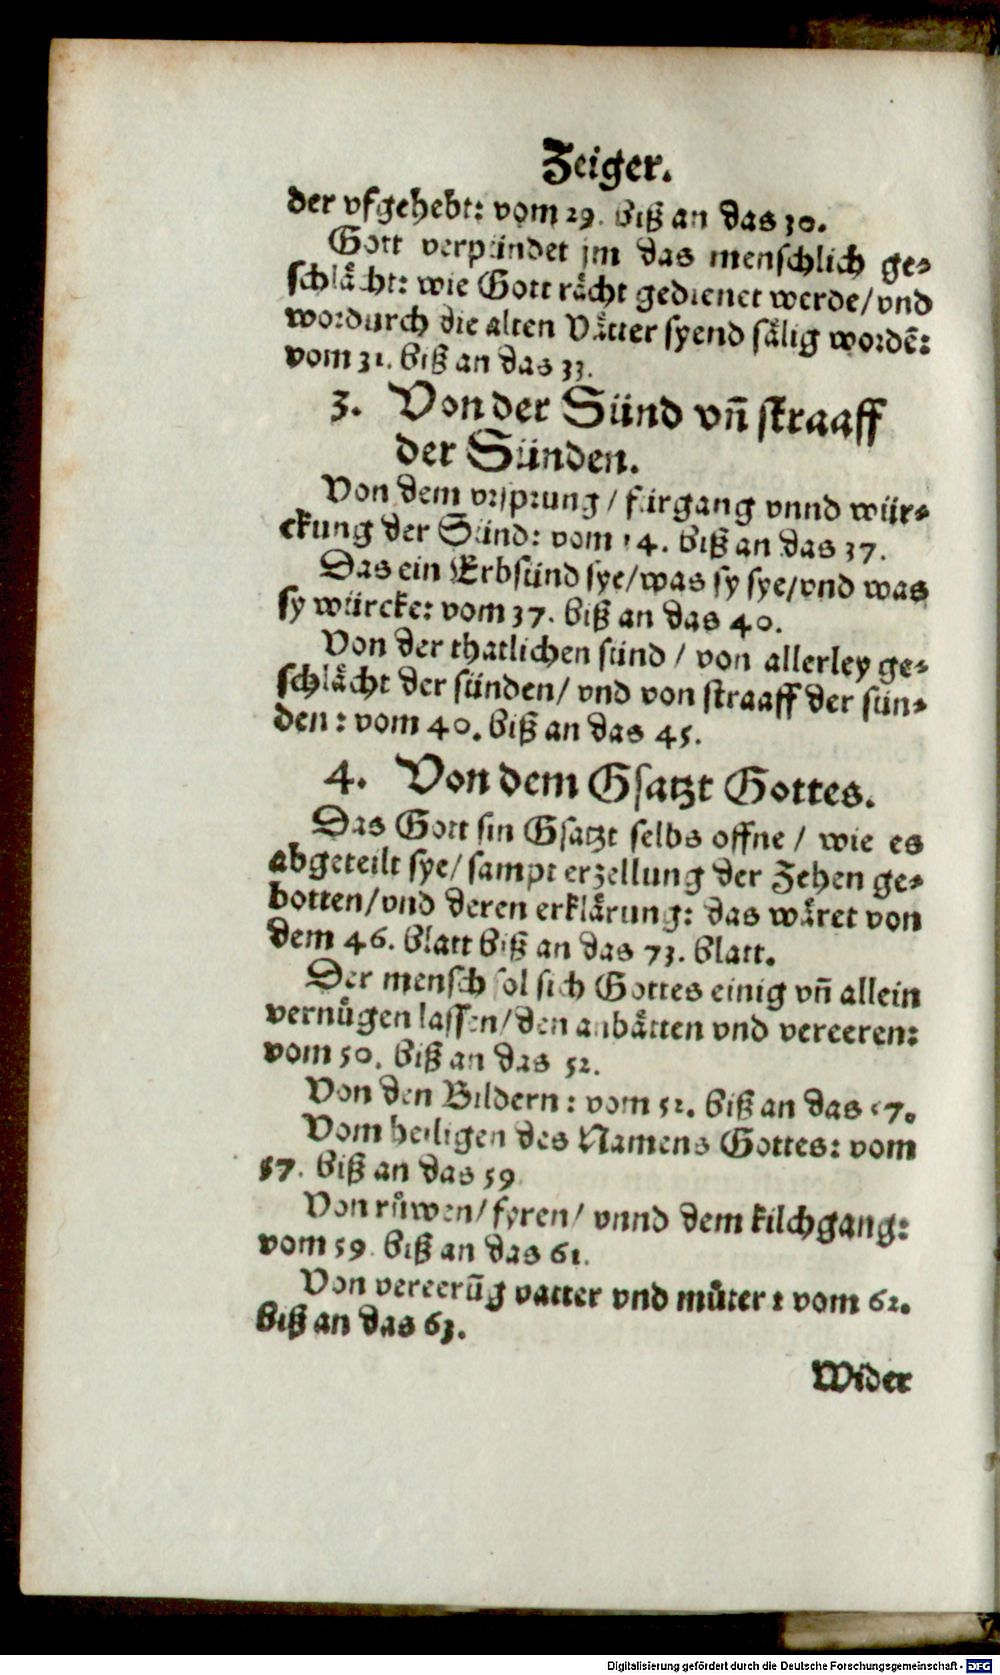 Zeiger.
der vfgehebt: vom 29. biß an das 30.
Gott verpündet jm das menschlich ge⸗
schlächt: wie Gott rächt gedienet werde/ vnd
wordurch die alten Vätter syend sälig wordē:
vom 31. biß an das 33.
3. Von der Sünd vn̄ straaff
der Sünden.
Von dem vrsprung / fürgang vnnd wür⸗
ckung der Sünd: vom 34. biß an das 37.
Das ein Erbsünd sye/ was sy sye/ vnd was
sy würcke: vom 37. biß an das 40.
Von der thatlichen sünd / von allerley ge⸗
schlächt der sünden/ vnd von straaff der sün⸗
den: vom 40. biß an das 45.
4. Von dem Gsatzt Gottes.
Das Gott sin Gsatzt selbs offne / wie es
abgeteilt sye/ sampt erzellung der Zehen ge⸗
botten/ vnd deren erklärung: das wäret von
dem 46. blatt biß an das 73. blatt.
Der mensch sol sich Gottes einig vn̄ allein
vernůgen lassen/ den anbätten vnd vereeren:
vom 50. biß an das 52.
Von den Bildern: vom 52. biß an das 57.
Vom heiligen des Namens Gottes: vom
57. biß an das 59.
Von růwen/ fyren/ vnnd dem kilchgang:
vom 59. biß an das 61.
Von vereerūg vatter vnd můter: vom 62.
biß an das 63.
Wider
Digitalisierung gefördert durch die Deutsche Forschungsgemeinschaft - DFG